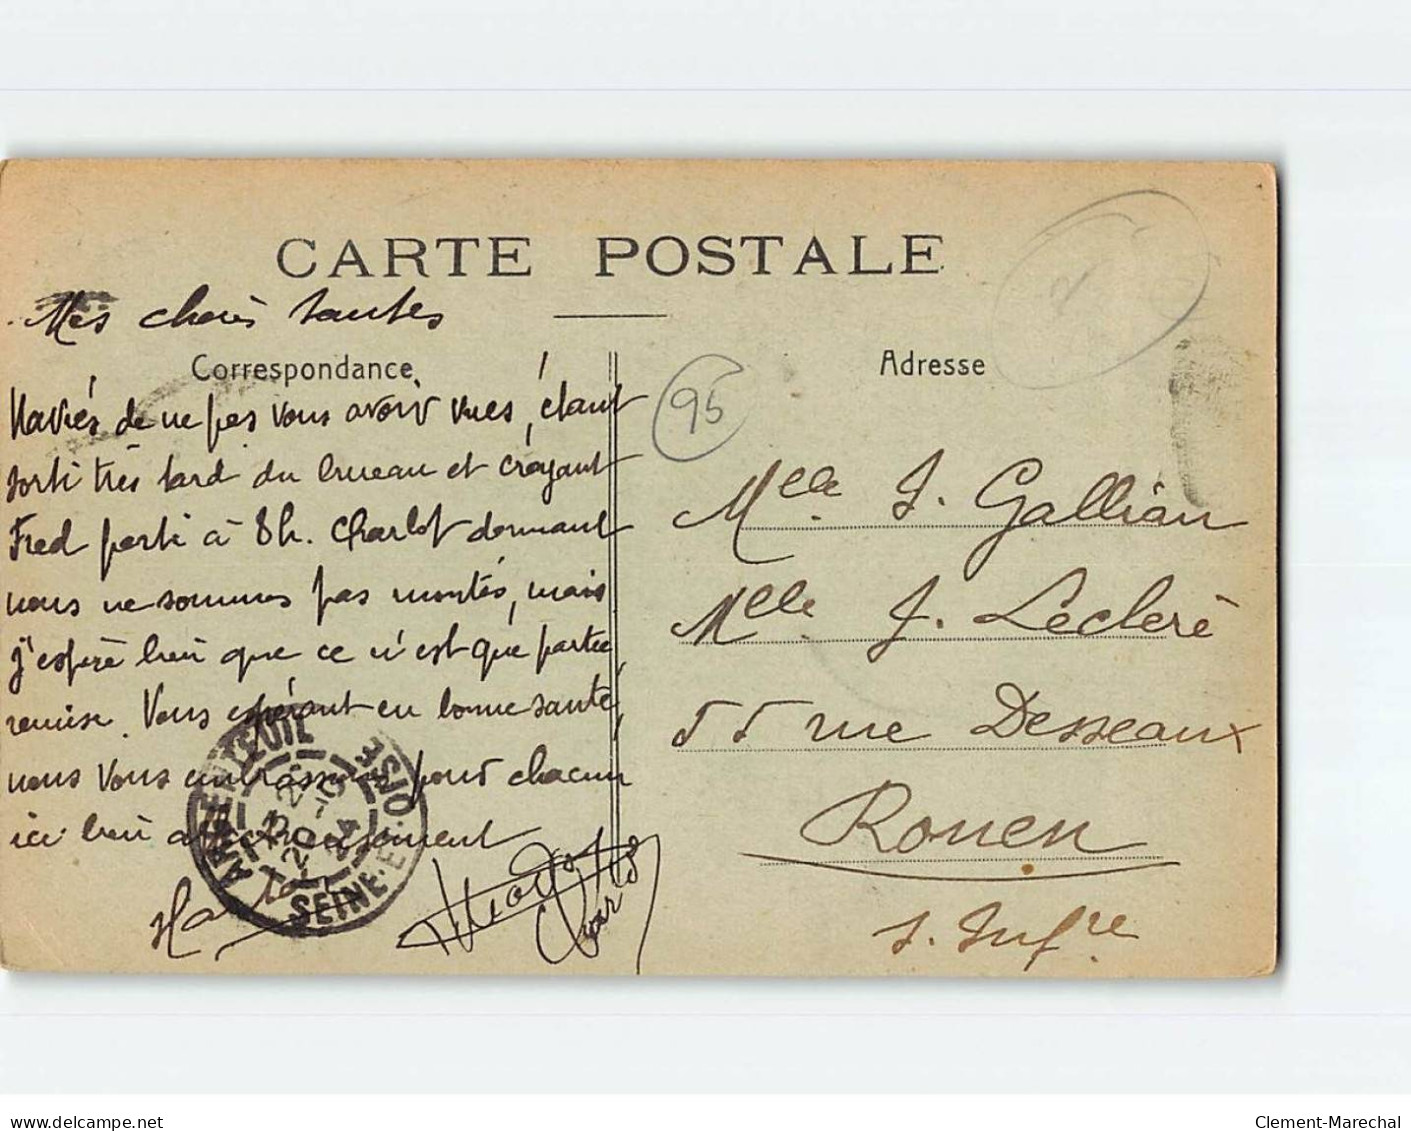 CARTE POSTALE
Mes chères tantes
Correspondance
Navrés de ne pas vous avoir vues, étant
sorti très tard du bureau et croyant
Fred parti à 8h. Charlot dormant
nous ne sommes pas montés, mais
j'espère bien que ce n'est que partie
remise. Vous espérant en bonne santé,
nous vous embrassons pour chacun
ici bien affectueusement
Charlot
ARGENTEUIL
SEINE-ET-OISE
13 25
20 - 10
24
Adresse
95
Melle J. Gallian
Melle J. Lecleré
55 rue Desseaux
Rouen
S. Infre
www.delcampe.net
Clement-Marechal